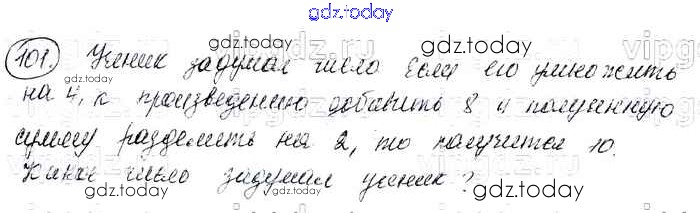 gdz.today
101. Ученик задумал число Если его умножить
на 4, к произведению добавить 8 и полученную
сумму разделить на 2, то получится 10.
Какое число задумал ученик?
gdz.today gdz.today
gdz.today gdz.today
gdz.today gdz.today
gdz.today gdz.today